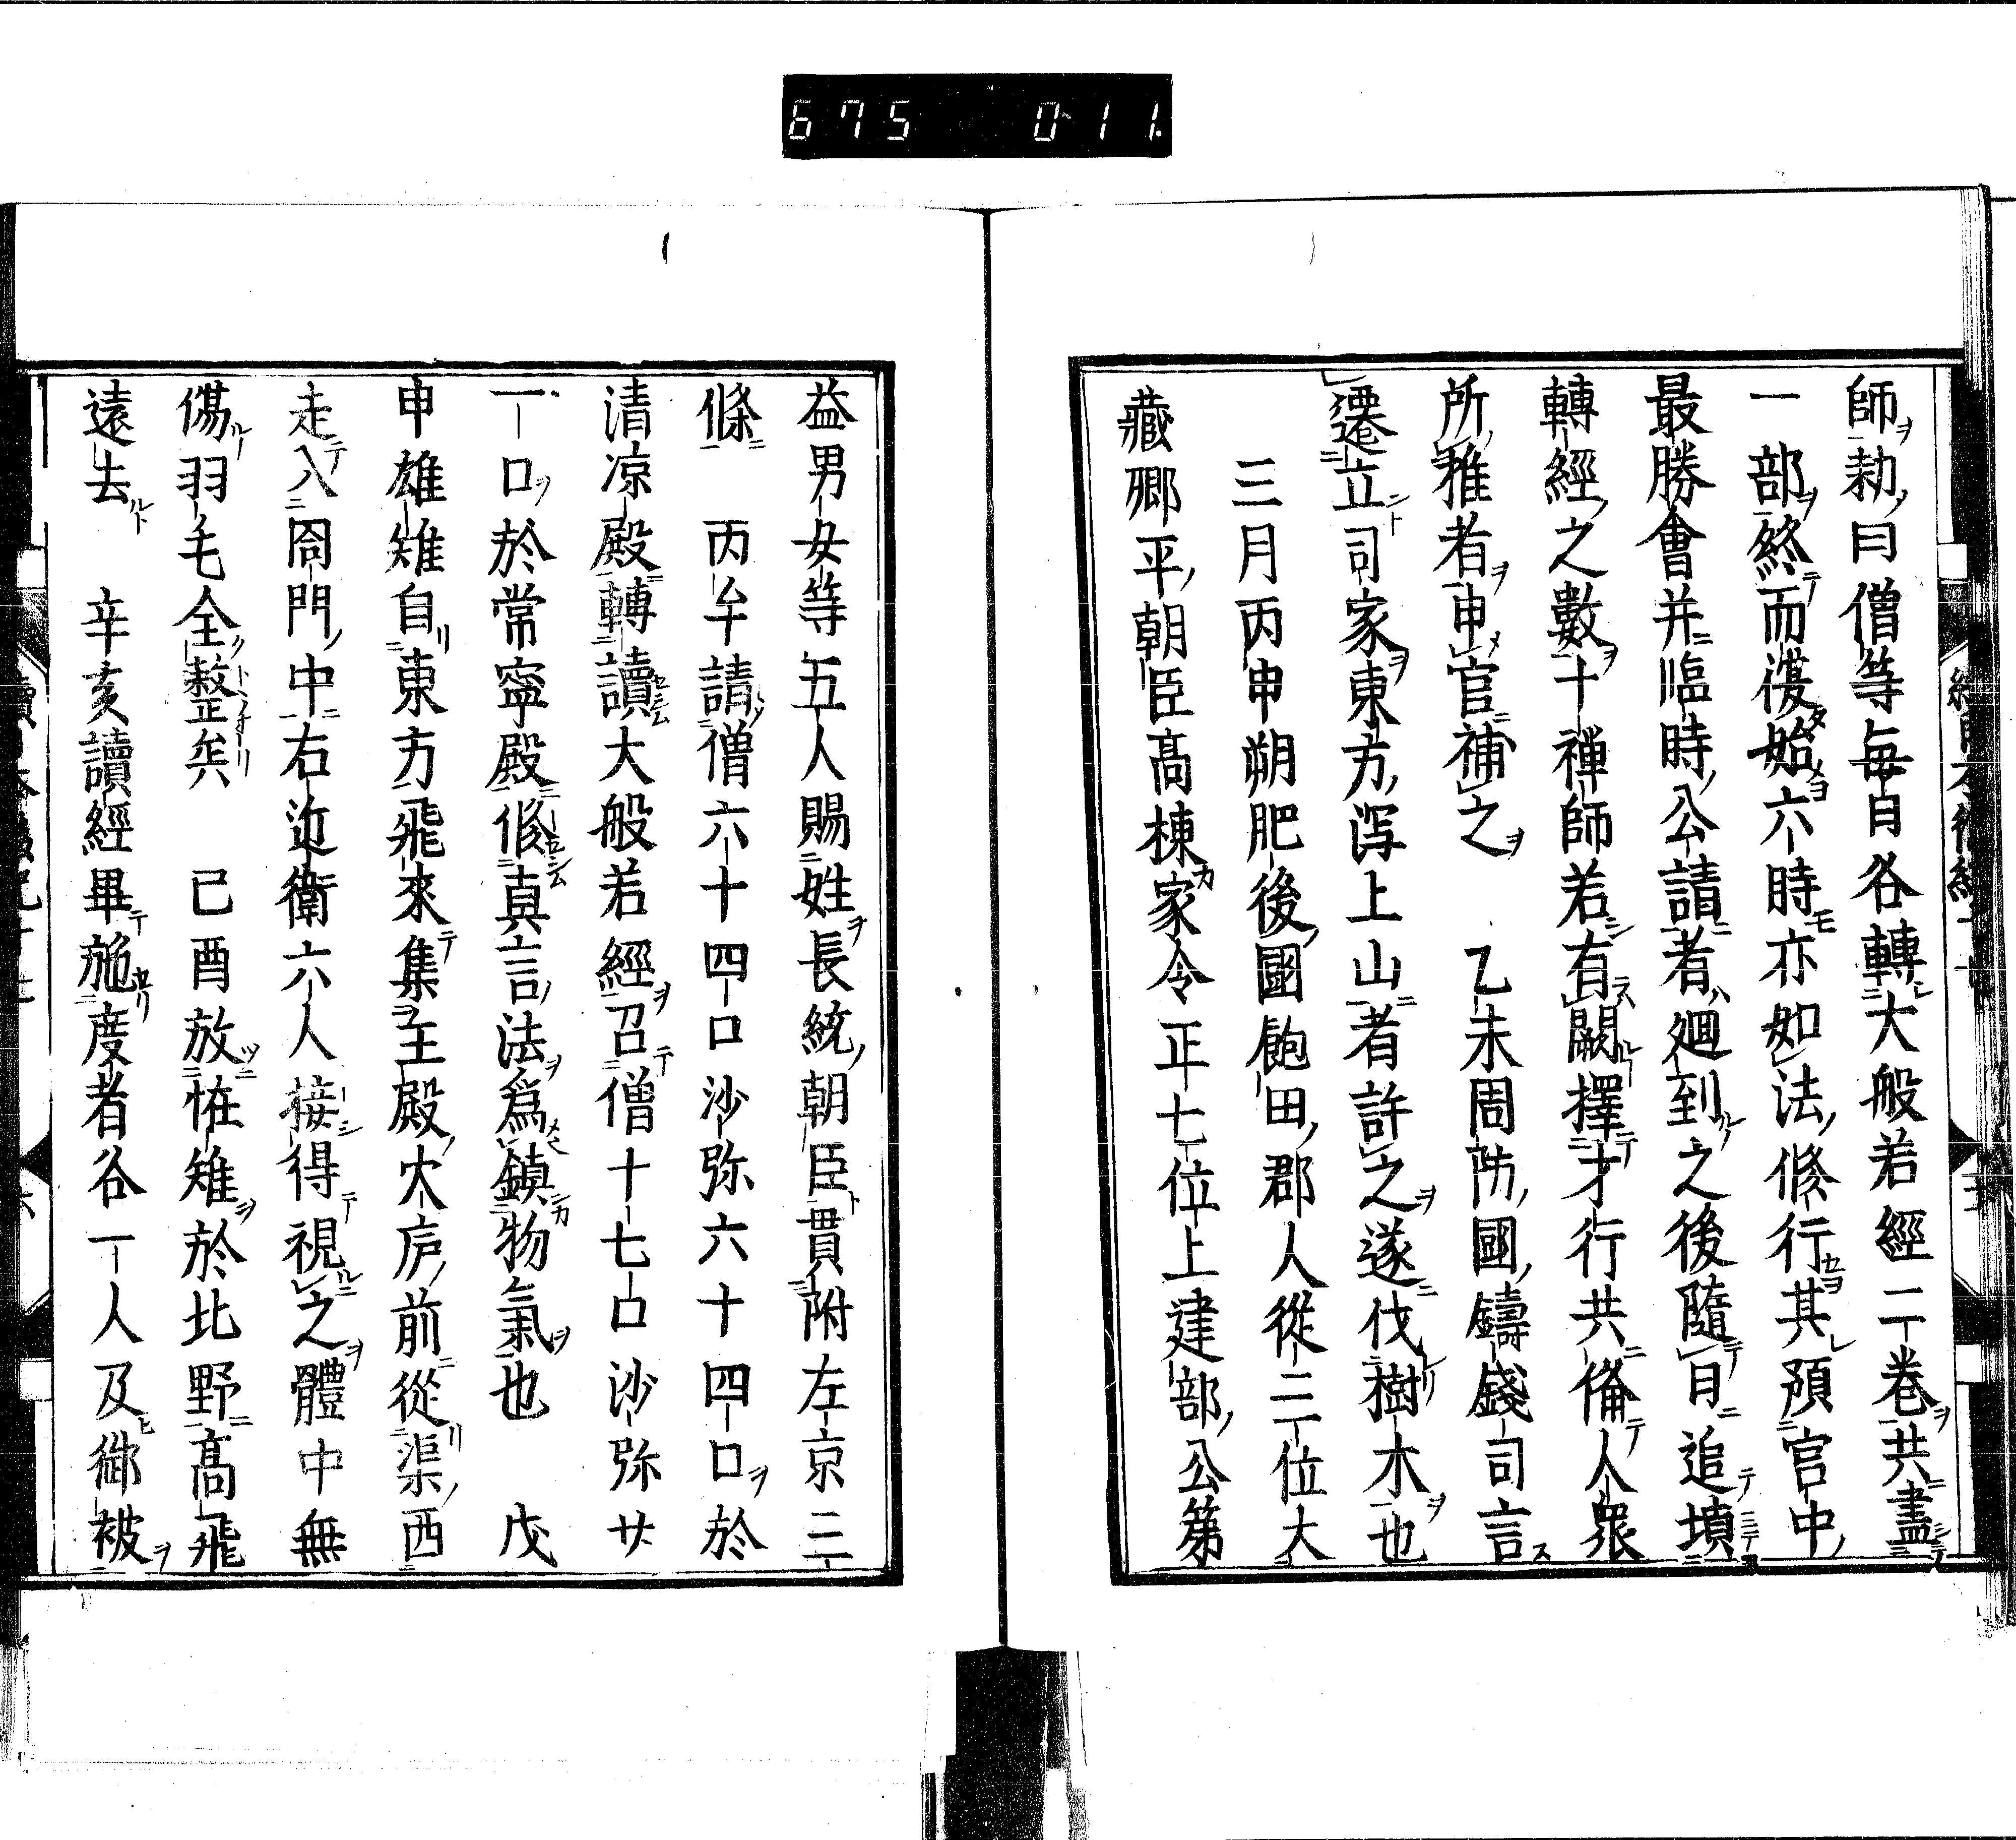 675 011
師勅曰僧等毎自各轉大般若經二卷共盡
一部終而復始六時亦如法修行其預官中
最勝會并臨時公請者廻到之後隨日追塡
轉經之數十禪師若有闕擇才行共備人衆
所推者申官補之 乙未周防國鑄錢司言
遷立司家東方潟上山者許之遂伐樹木也
三月丙申朔肥後國飽田郡人從二位大
藏卿平朝臣高棟家令正七位上建部公第
益男女等五人賜姓長統朝臣貫附左京三
條 丙午請僧六十四口沙弥六十四口於
清凉殿轉讀大般若經召僧十七口沙弥廿
一口於常寧殿修眞言法爲鎭物氣也 戊
申雄雉自東方飛來集主殿大庭前從渠西
走入閤門中右近衛六人接得視之體中無
傷羽毛全整矣 己酉放恠雉於北野高飛
遠去 辛亥讀經畢施度者各一人及御被